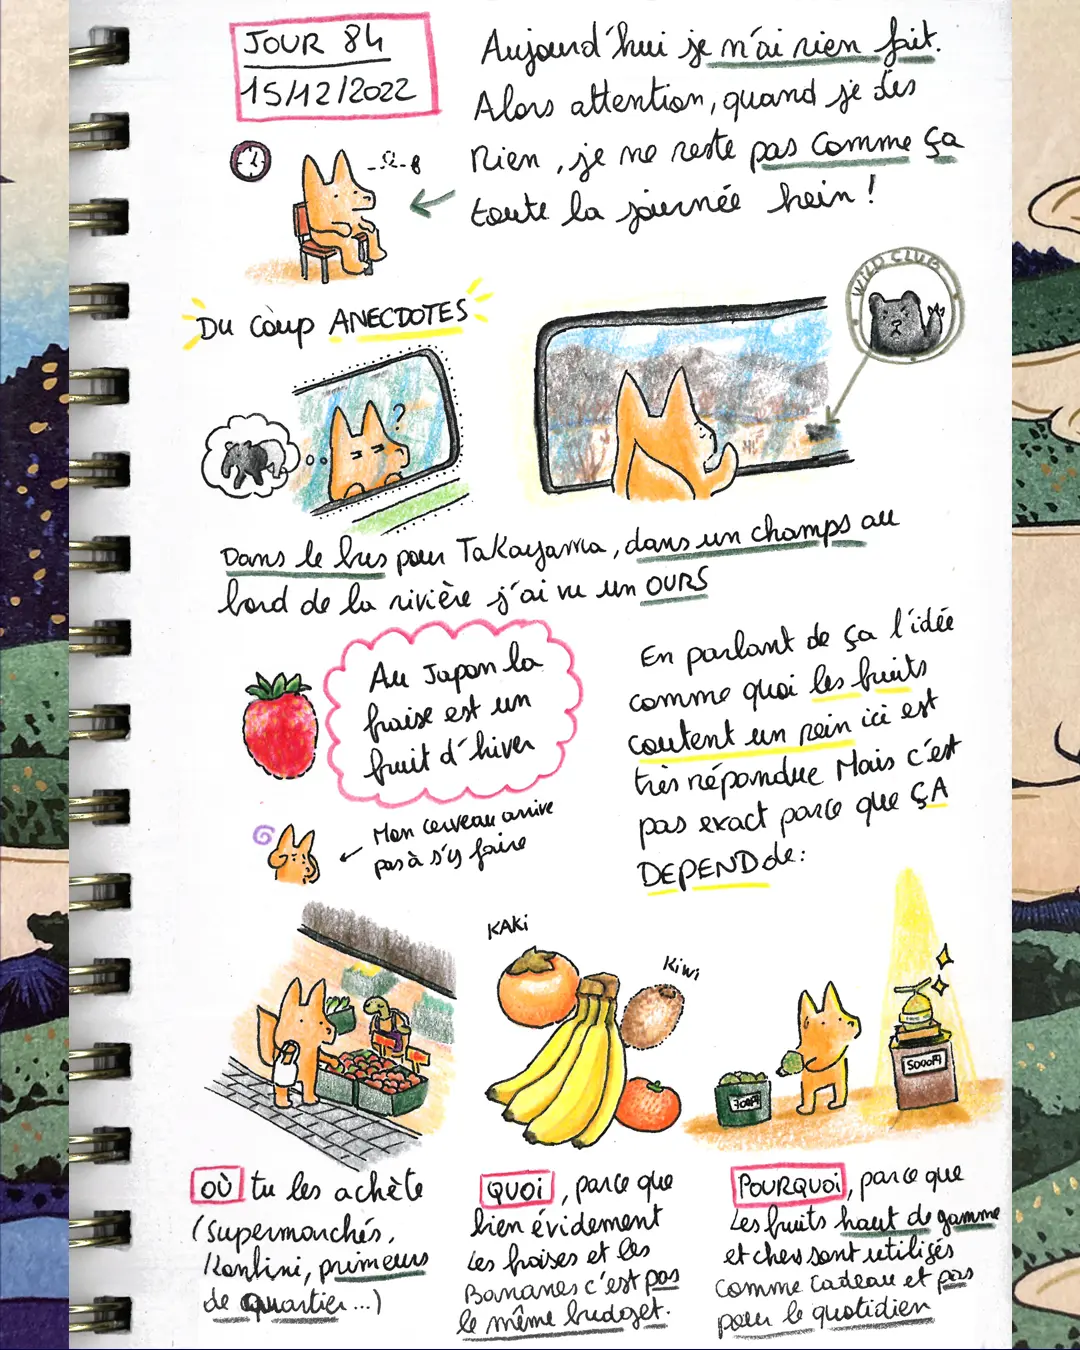 JOUR 84
15/12/2022
Aujourd'hui je n'ai rien fait.
Alors attention, quand je dis
Rien, je ne reste pas comme ça
toute la journée hein !
Du Coup ANECDOTES
WILD CLUB
?
Dans le bus pour Takayama, dans un champs au
bord de la rivière j'ai vu un OURS
Au Japon la
fraise est un
fruit d'hiver
Mon cerveau arrive
pas à s'y faire
En parlant de ça l'idée
comme quoi les fruits
coutent un rein ici est
très répandue Mais c'est
pas exact parce que ÇA
DEPEND de:
KAKi
Kiwi
5000Fl
OÙ tu les achète
(Supermarchés,
Konbini, primeurs
de quartier...)
QUOi, parce que
bien évidement
Les fraises et les
Bananes c'est pas
le même budget.
POURQUOi, parce que
Les fruits haut de gamme
et chers sont utilisés
comme cadeau et pas
pour le quotidien